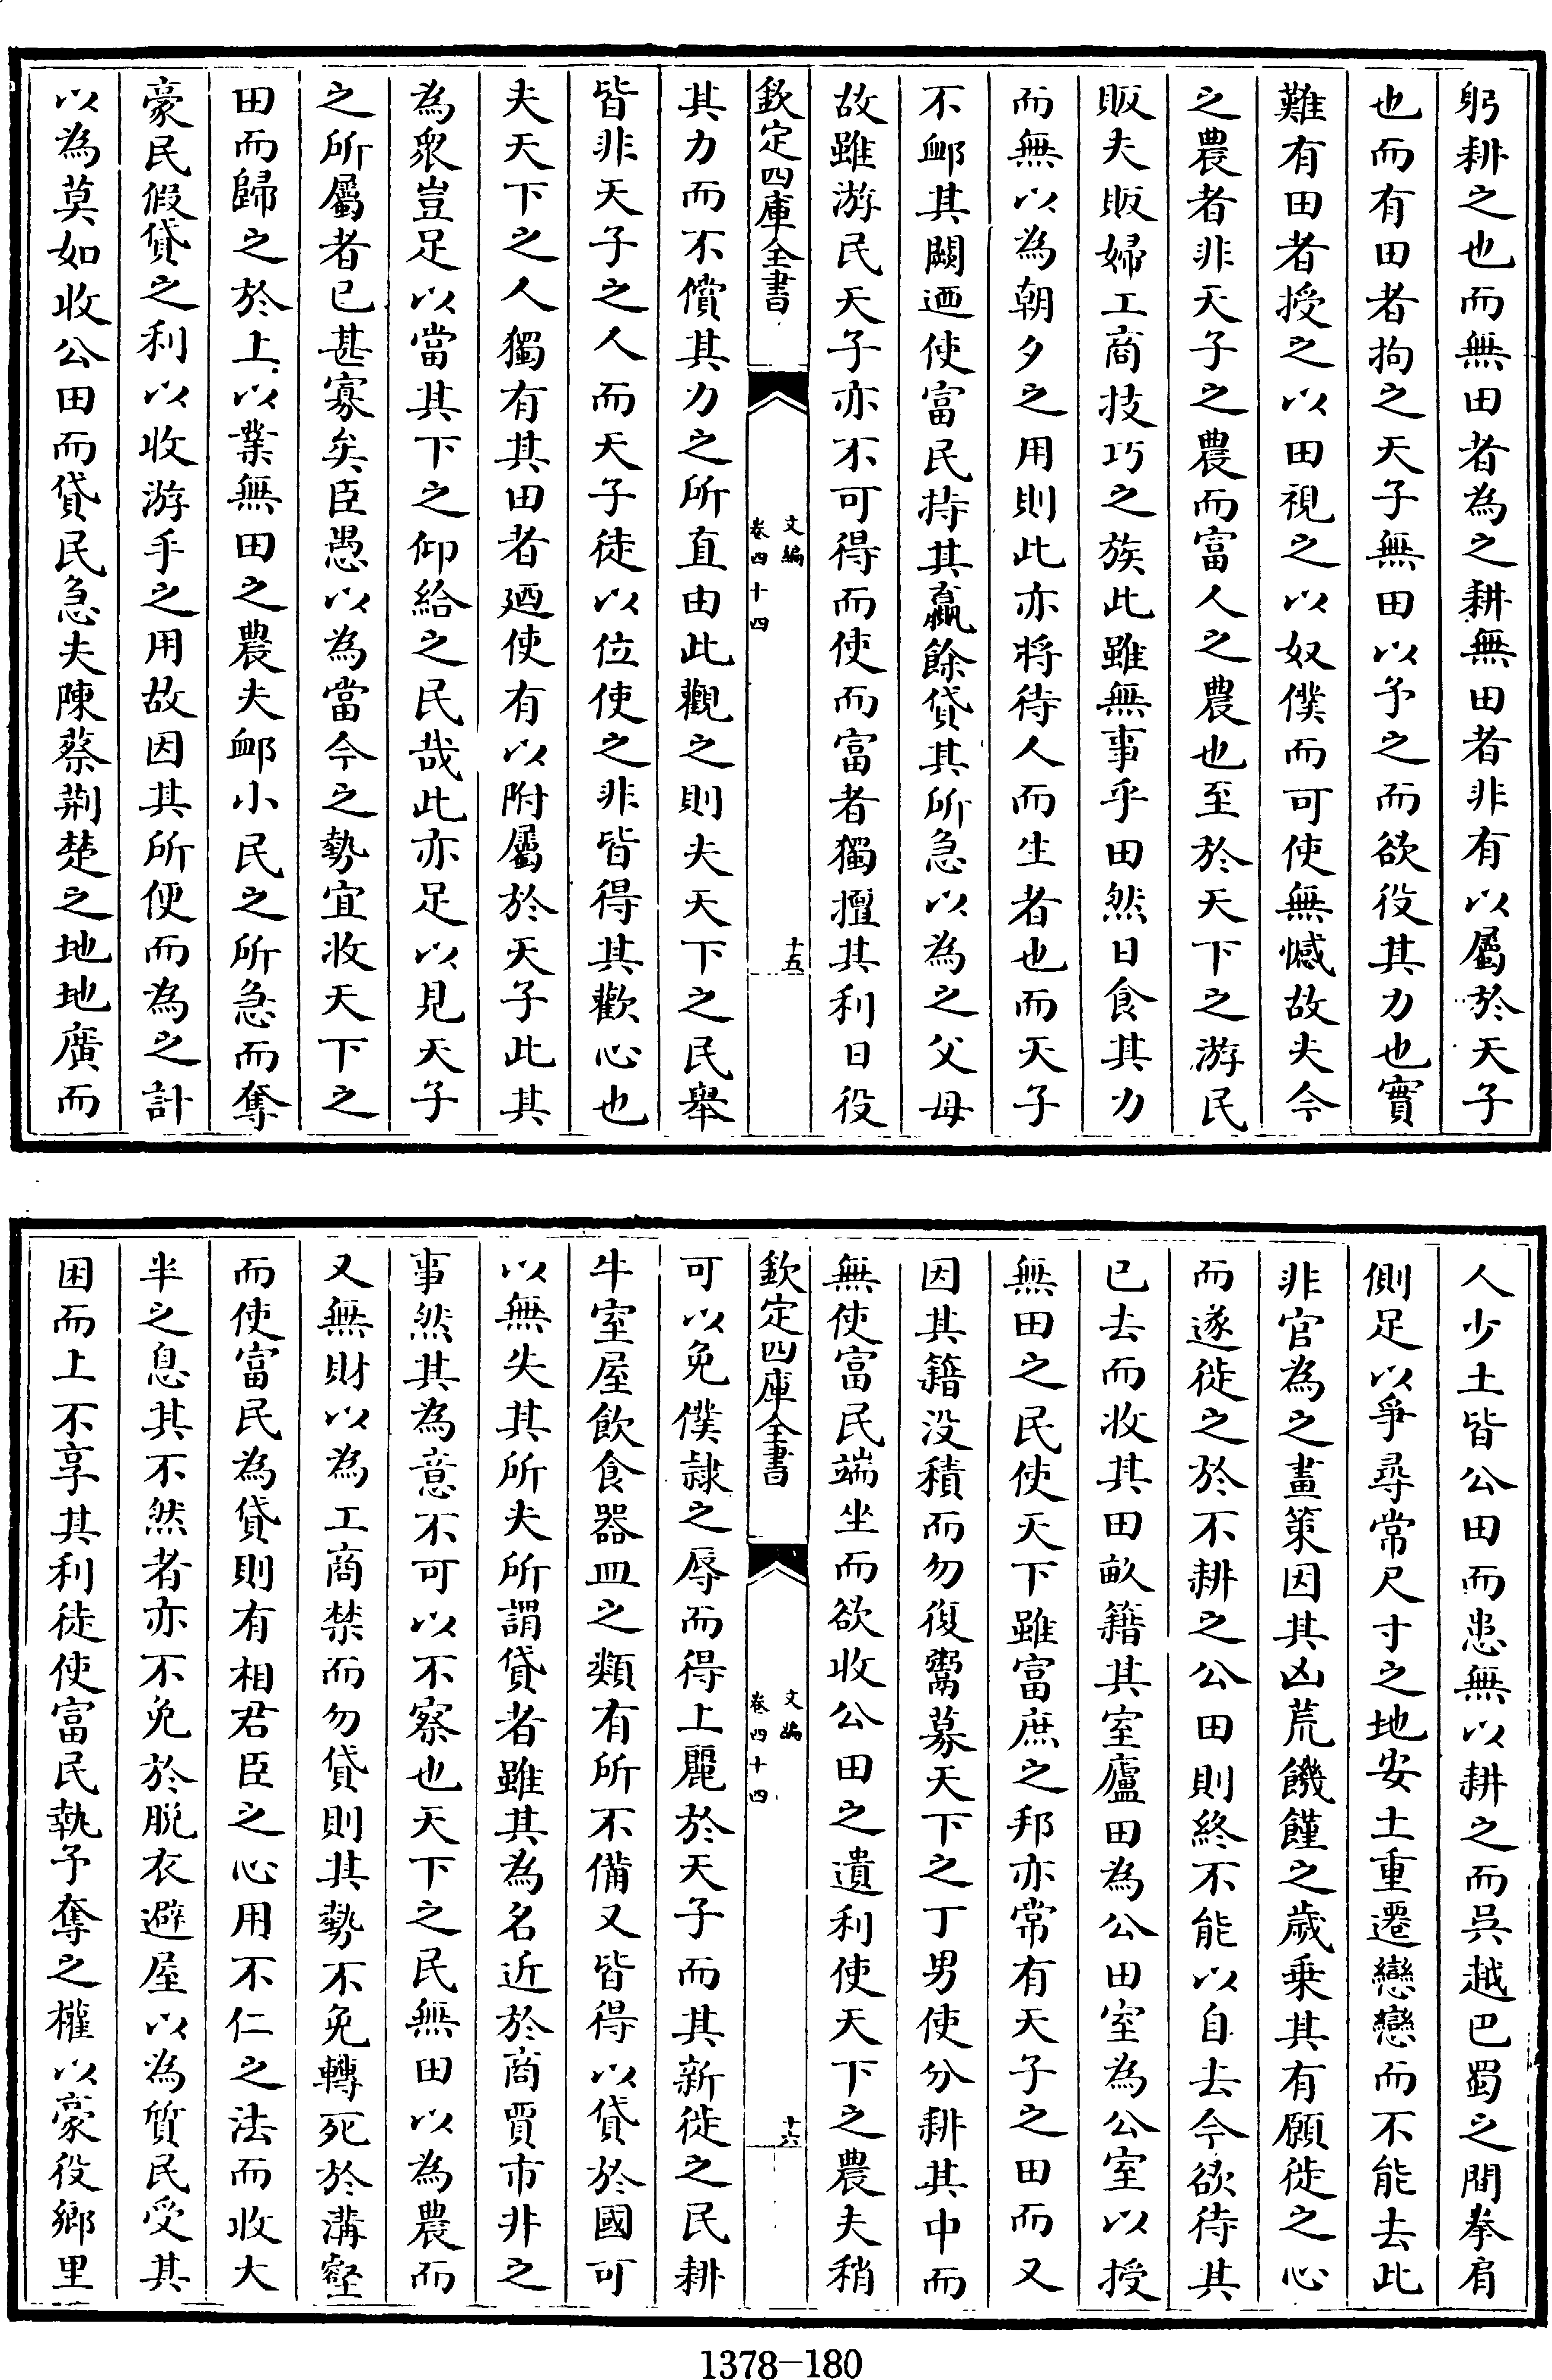 躬耕之也而無田者為之耕無田者非有以屬於天子
也而有田者拘之天子無田以予之而欲役其力也實
難有田者授之以田視之以奴僕而可使無憾故夫今
之農者非天子之農而富人之農也至於天下之游民
販夫販婦工商技巧之族此雖無事乎田然日食其力
而無以為朝夕之用則此亦將待人而生者也而天子
不䘏其闕迺使富民持其贏餘貸其所急以為之父母
故雖游民天子亦不可得而使而富者獨擅其利日役
欽定四庫全書
文編
卷四十四
十五
其力而不償其力之所直由此觀之則夫天下之民舉
皆非天子之人而天子徒以位使之非皆得其歡心也
夫天下之人獨有其田者廼使有以附屬於天子此其
為衆豈足以當其下之仰給之民哉此亦足以見天子
之所屬者已甚寡矣臣愚以為當今之勢宜收天下之
田而歸之於上以業無田之農夫䘏小民之所急而奪
豪民假貸之利以收游手之用故因其所便而為之計
以為莫如收公田而貸民急夫陳蔡荆楚之地地廣而
人少土皆公田而患無以耕之而吳越巴蜀之間拳肩
側足以爭尋常尺寸之地安土重遷戀戀而不能去此
非官為之畫策因其凶荒饑饉之歲乗其有願徙之心
而遂徙之於不耕之公田則終不能以自去今欲待其
已去而收其田畝籍其室廬田為公田室為公室以授
無田之民使天下雖富庶之邦亦常有天子之田而又
因其籍没積而勿復鬻募天下之丁男使分耕其中而
無使富民端坐而欲收公田之遺利使天下之農夫稍
欽定四庫全書
文編
卷四十四
十六
可以免僕隷之辱而得上麗於天子而其新徙之民耕
牛室屋飲食器皿之類有所不備又皆得以貸於國可
以無失其所夫所謂貸者雖其為名近於商賈市井之
事然其為意不可以不察也天下之民無田以為農而
又無財以為工商禁而勿貸則其勢不免轉死於溝壑
而使富民為貸則有相君臣之心用不仁之法而收大
半之息其不然者亦不免於脱衣避屋以為質民受其
困而上不享其利徒使富民執予奪之權以豪役鄉里
1378—180